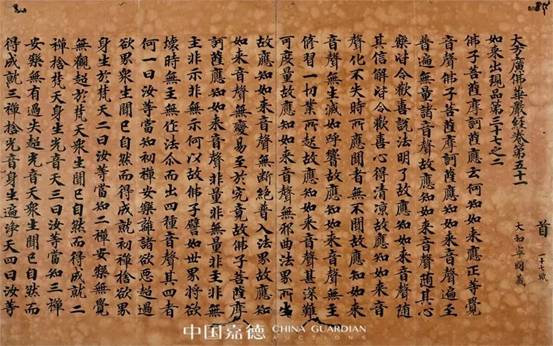 首 十七紙
大和寧國藏
大方廣佛華嚴經卷第五十一
如來出現品第三十七之二
佛子菩薩摩訶薩應云何知如來應正等覺
音聲佛子菩薩摩訶薩應知如來音聲遍至
普遍無量諸音聲故應知如來音聲隨其心
樂皆令歡喜說法明了故應知如來音聲隨
其信解皆令歡喜心得清涼故應知如來音
聲化不失時所應聞者無不聞故應知如來
音聲無生滅如呼響故應知如來音聲無主
修習一切業所起故應知如來音聲甚深難
可度量故應知如來音聲無邪曲法界所生
故應知如來音聲無斷絕普入法界故應知
如來音聲無變易至於究竟故佛子菩薩摩
訶薩應知如來音聲非量非無量非主非無
主非示非無示何以故佛子譬如世界將欲
壞時無主無作法尒而出四種音聲其四者
何一曰汝等當知初禪安樂離諸欲惡超過
欲界眾生聞已自然而得成就初禪捨欲界
身生於梵天二曰汝等當知二禪安樂無覺
無觀超於梵天眾生聞已自然而得成就二
禪捨梵天身生光音天三曰汝等當知三禪
安樂無有過失超光音天眾生聞已自然而
得成就三禪捨光音身生遍淨天四曰汝等
中国嘉德 CHINA GUARDIAN
AUCTIONS